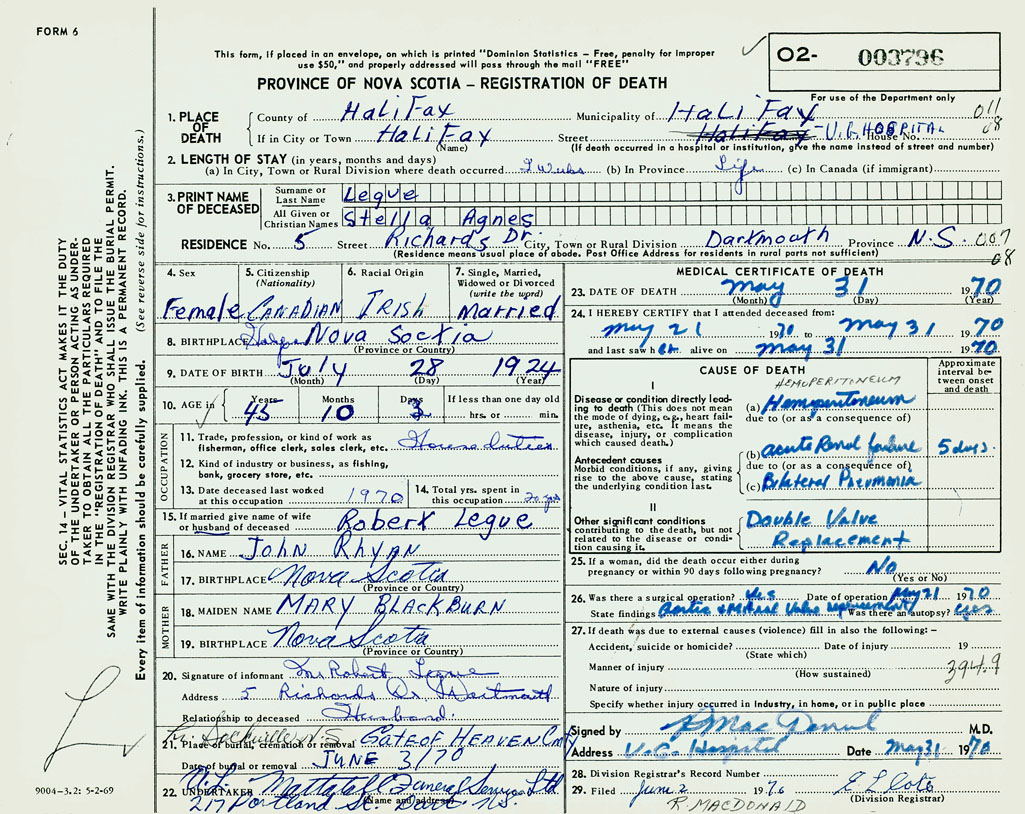 FORM 6
This form, if placed in an envelope, on which is printed "Dominion Statistics – Free, penalty for improper
use $50," and properly addressed will pass through the mail "FREE"
PROVINCE OF NOVA SCOTIA – REGISTRATION OF DEATH
02- 003796
For use of the Department only
1. PLACE OF DEATH
County of HaliFax Municipality of HaliFax 011
If in City or Town HaliFax Street HaliFax - V.G. HOSPITAL House No. 08
(Name) (If death occurred in a hospital or institution, give the name instead of street and number)
2. LENGTH OF STAY (in years, months and days)
(a) In City, Town or Rural Division where death occurred (b) In Province Life (c) In Canada (if immigrant)
3. PRINT NAME OF DECEASED
Surname or Last Name Legue
All Given or Christian Names Stella Agnes
RESIDENCE No. 5 Street Richards Dr. City, Town or Rural Division Dartmouth Province N.S. 007
(Residence means usual place of abode. Post Office Address for residents in rural parts not sufficient) 08
4. Sex Female
5. Citizenship (Nationality) CANADIAN
6. Racial Origin IRISH
7. Single, Married, Widowed or Divorced (write the word) Married
8. BIRTHPLACE Nova Soctia
(Province or Country)
9. DATE OF BIRTH July 28 1924
(Month) (Day) (Year)
10. AGE in Years 45 Months 10 Days 3 If less than one day old
hrs. or min.
OCCUPATION
11. Trade, profession, or kind of work as
fisherman, office clerk, sales clerk, etc.
12. Kind of industry or business, as fishing,
bank, grocery store, etc.
13. Date deceased last worked at this occupation 1970
14. Total yrs. spent in this occupation
15. If married give name of wife
or husband of deceased Robert Legue
FATHER
16. NAME John Rhyan
17. BIRTHPLACE Nova Scotia
(Province or Country)
MOTHER
18. MAIDEN NAME MARY BLACKBURN
19. BIRTHPLACE Nova Scotia
(Province or Country)
20. Signature of informant Mr Robert Legue
Address 5 Richards Dr Dartmouth
Relationship to deceased Husband.
Sackville N.S
21. Place of burial, cremation or removal GATE OF HEAVEN
Date of burial or removal JUNE 3/70
22. UNDERTAKER Mattatall Funeral Service Ltd
(Name and address)
217 Portland St. Dart N.S.
MEDICAL CERTIFICATE OF DEATH
23. DATE OF DEATH May 31 1970
(Month) (Day) (Year)
24. I HEREBY CERTIFY that I attended deceased from:
May 21 1970 to May 31 1970
and last saw her alive on May 31 1970
CAUSE OF DEATH
Approximate interval between onset and death
HEMOPERITONEUM
I
Disease or condition directly leading to death (This does not mean the mode of dying, e.g., heart failure, asthenia, etc. It means the disease, injury, or complication which caused death.)
(a) Hemoperitoneum
due to (or as a consequence of)
(b) acute Renal failure 5 days.
Antecedent causes
Morbid conditions, if any, giving rise to the above cause, stating the underlying condition last.
due to (or as a consequence of)
(c) Bilateral Pneumonia
II
Other significant conditions contributing to the death, but not related to the disease or condition causing it.
Double Valve
Replacement
25. If a woman, did the death occur either during
pregnancy or within 90 days following pregnancy? No
(Yes or No)
26. Was there a surgical operation? Yes Date of operation May 21 1970
State findings Aortic & Mitral Valve replacement Was there an autopsy? yes
27. If death was due to external causes (violence) fill in also the following: –
Accident, suicide or homicide? Date of injury 19
(State which)
Manner of injury 394.9
(How sustained)
Nature of injury
Specify whether injury occurred in industry, in home, or in public place
Signed by M.D.
Address V.G. Hospital Date May 31 1970
28. Division Registrar's Record Number
29. Filed June 2 19
(Division Registrar)
R. MACDONALD
9004-3.2: 5-2-69
SEC. 14 – VITAL STATISTICS ACT MAKES IT THE DUTY
OF THE UNDERTAKER OR PERSON ACTING AS UNDER-
TAKER TO OBTAIN ALL THE PARTICULARS REQUIRED
IN THE "REGISTRATION OF DEATH" AND TO FILE THE
SAME WITH THE DIVISION REGISTRAR WHO SHALL ISSUE THE BURIAL PERMIT.
WRITE PLAINLY WITH UNFADING INK. THIS IS A PERMANENT RECORD.
Every item of information should be carefully supplied. (See reverse side for instructions.)